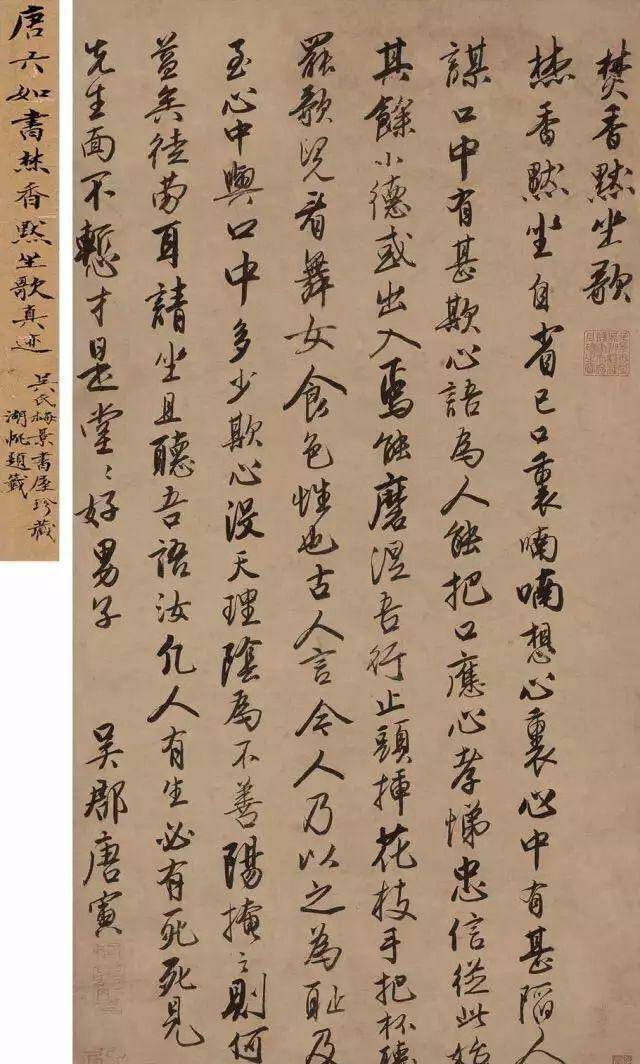 焚香默坐歌
焚香默坐自省己口裏喃喃想心裏心中有甚陷人
謀口中有甚欺心語為人能把口應心孝悌忠信從此始
其餘小德或出入焉能磨涅吾行止頭插花枝手把杯聽
罷歌兒看舞女食色性也古人言今人乃以之為恥及
至心中與口中多少欺心沒天理陰為不善陽掩之則何
益矣徒勞耳請坐且聽吾語汝凡人有生必有死死見
先生面不慙才是堂〻好男子 吳郡唐寅
唐六如書焚香默坐歌真迹
吳氏梅景書屋珍藏
湖帆題籤